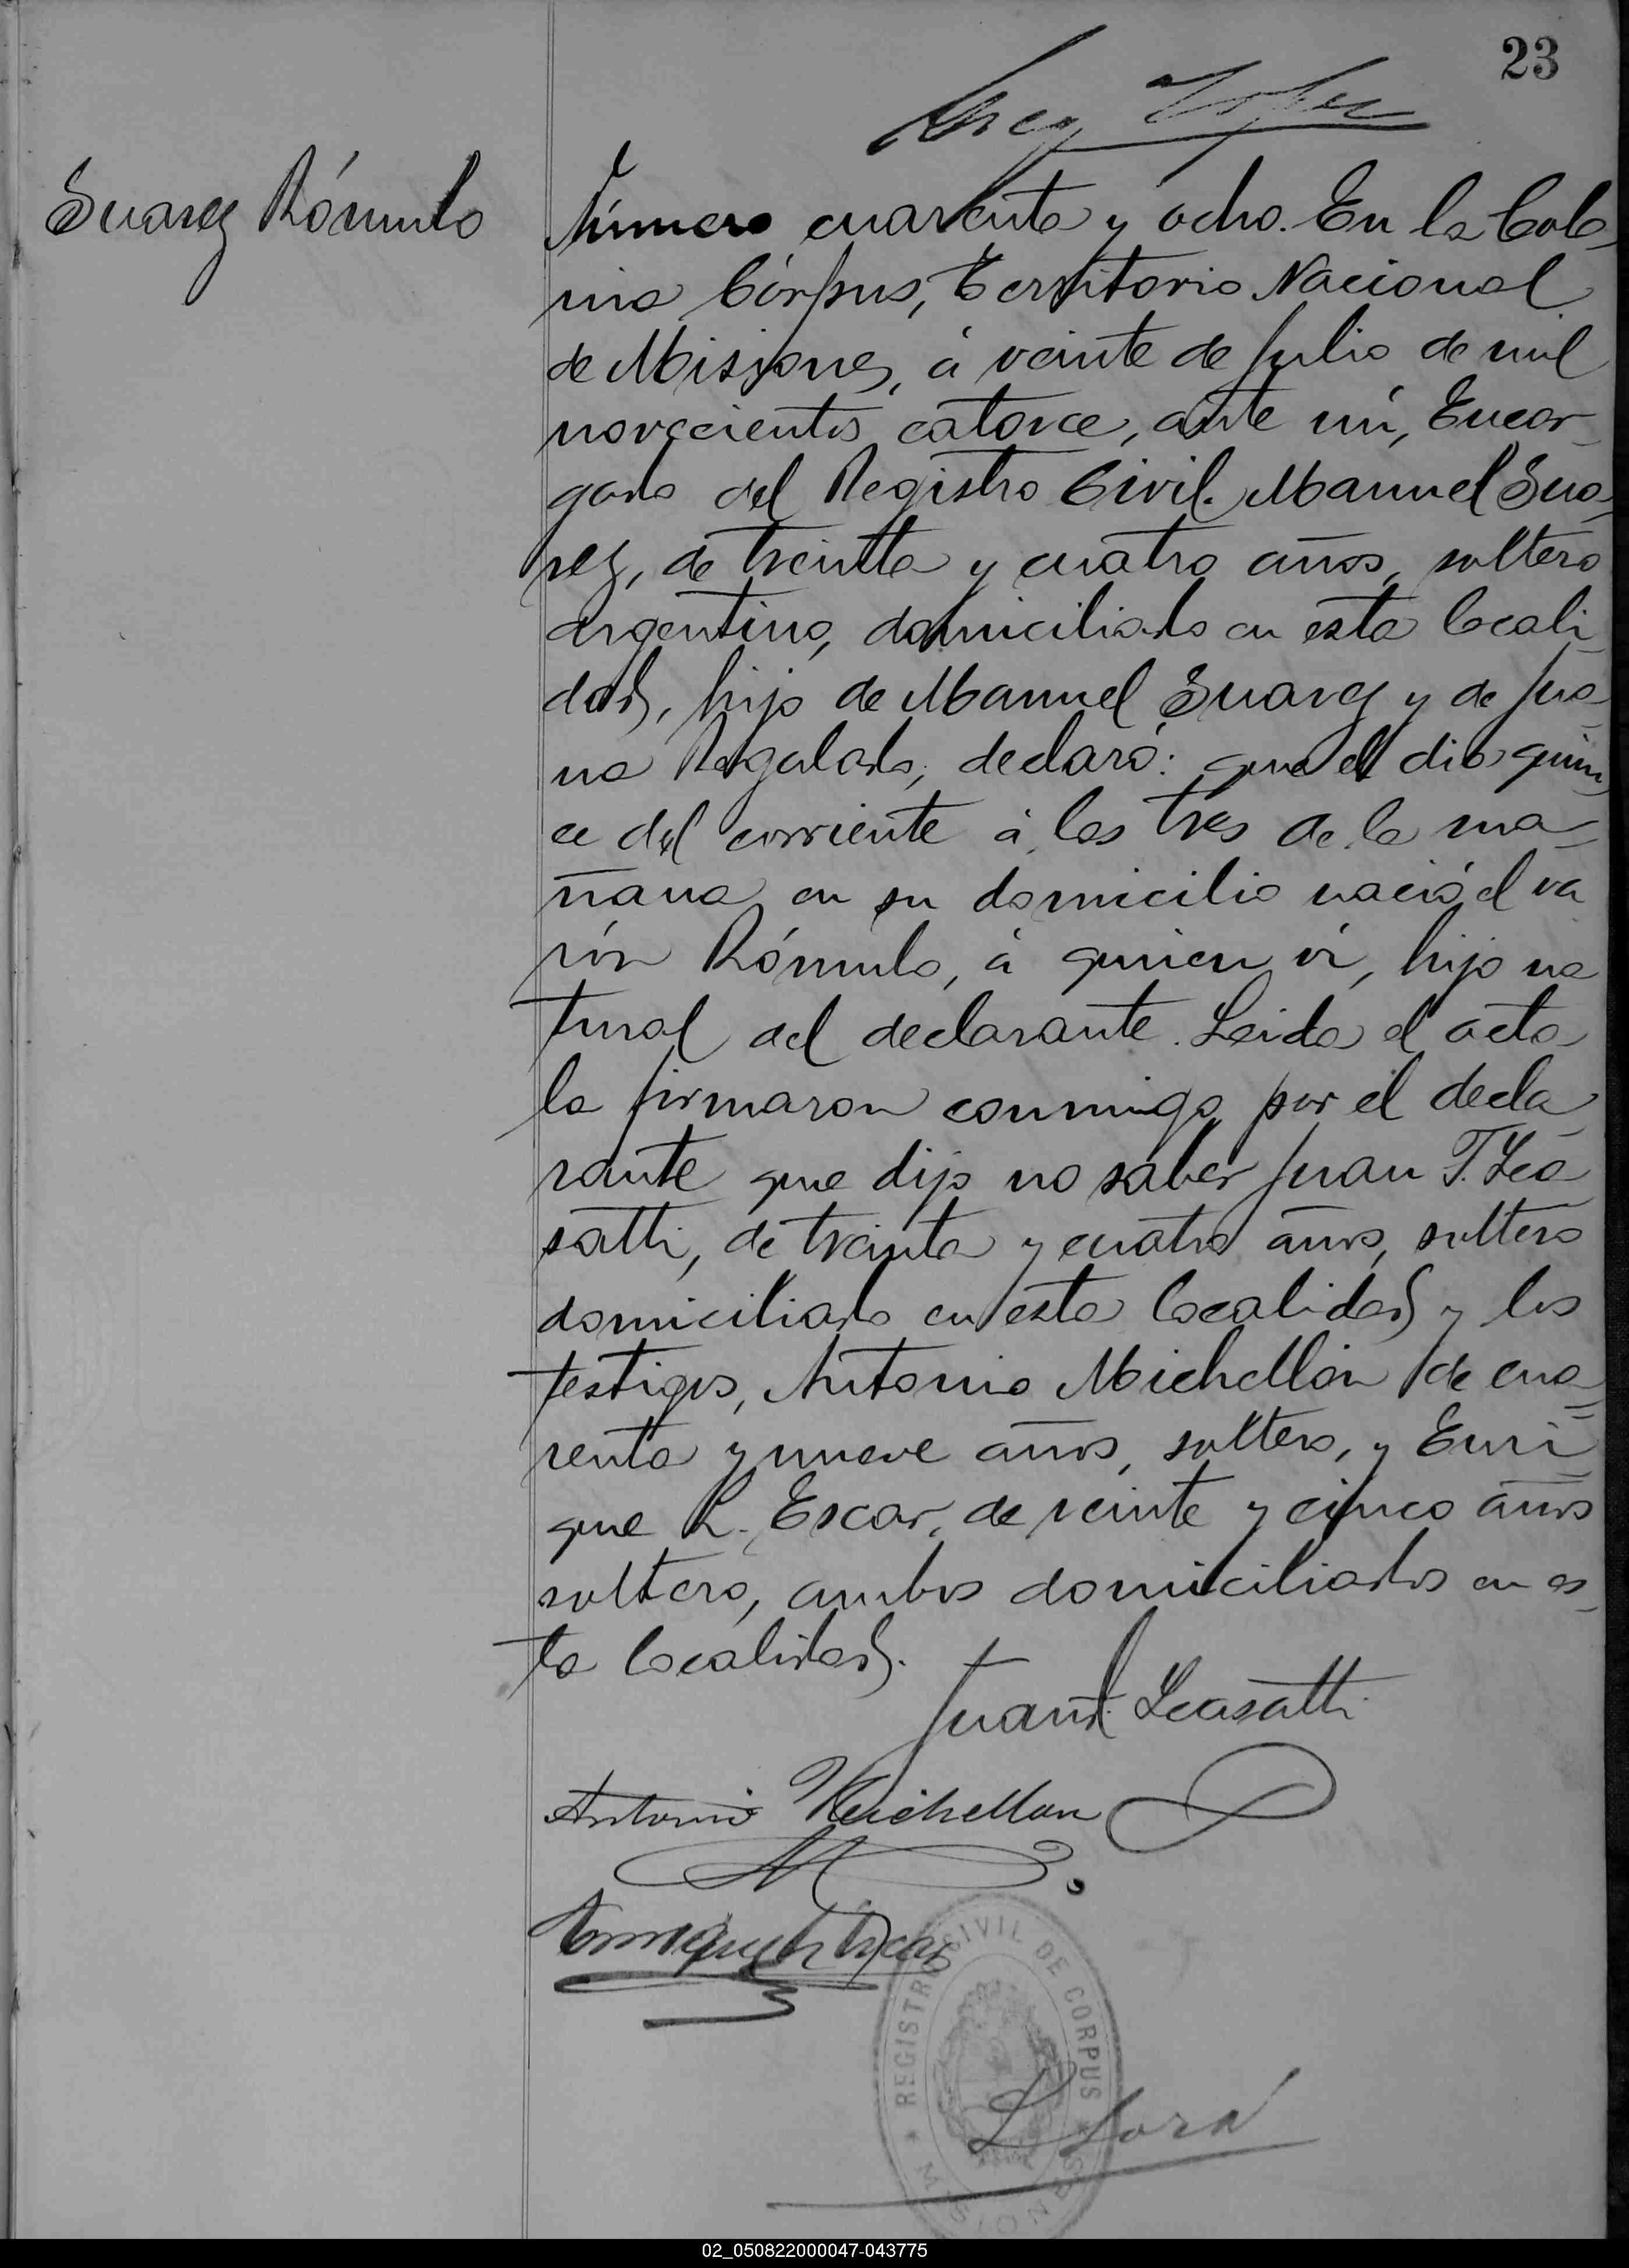 23
Suarez Rómulo
Número cuarenta y ocho. En la Colo
nia Córpus, Territorio Nacional
de Misiones, á veinte de Julio de mil
novecientos catorce, ante mí, Encar-
gado del Registro Civil. Manuel Sua-
rez, de treinta y cuatro años, soltero
argentino, domiciliado en esta locali-
dad, hijo de Manuel Suarez y de Jua-
na Regalado, declaró: que el dia quin
ce del corriente á las tres de la ma-
ñana en su domicilio nació el va
rón Rómulo, á quien ví, hijo na
tural del declarante. Leida el acta
la firmaron conmigo, por el decla
rante que dijo no saber Juan T. Lea
satti, de treinta y cuatro años, soltero
domiciliado en esta localidad y los
testigos, Antonio Michellón de cua-
renta y nueve años, soltero, y Enri=
que R. Escar, de veinte y cinco años
soltero, ambos domiciliados en es-
ta localidad.
Juan T. Leasatti
Antonio Michellon
REGISTRO CIVIL DE CORPUS
MISIONES
02_050822000047-043775